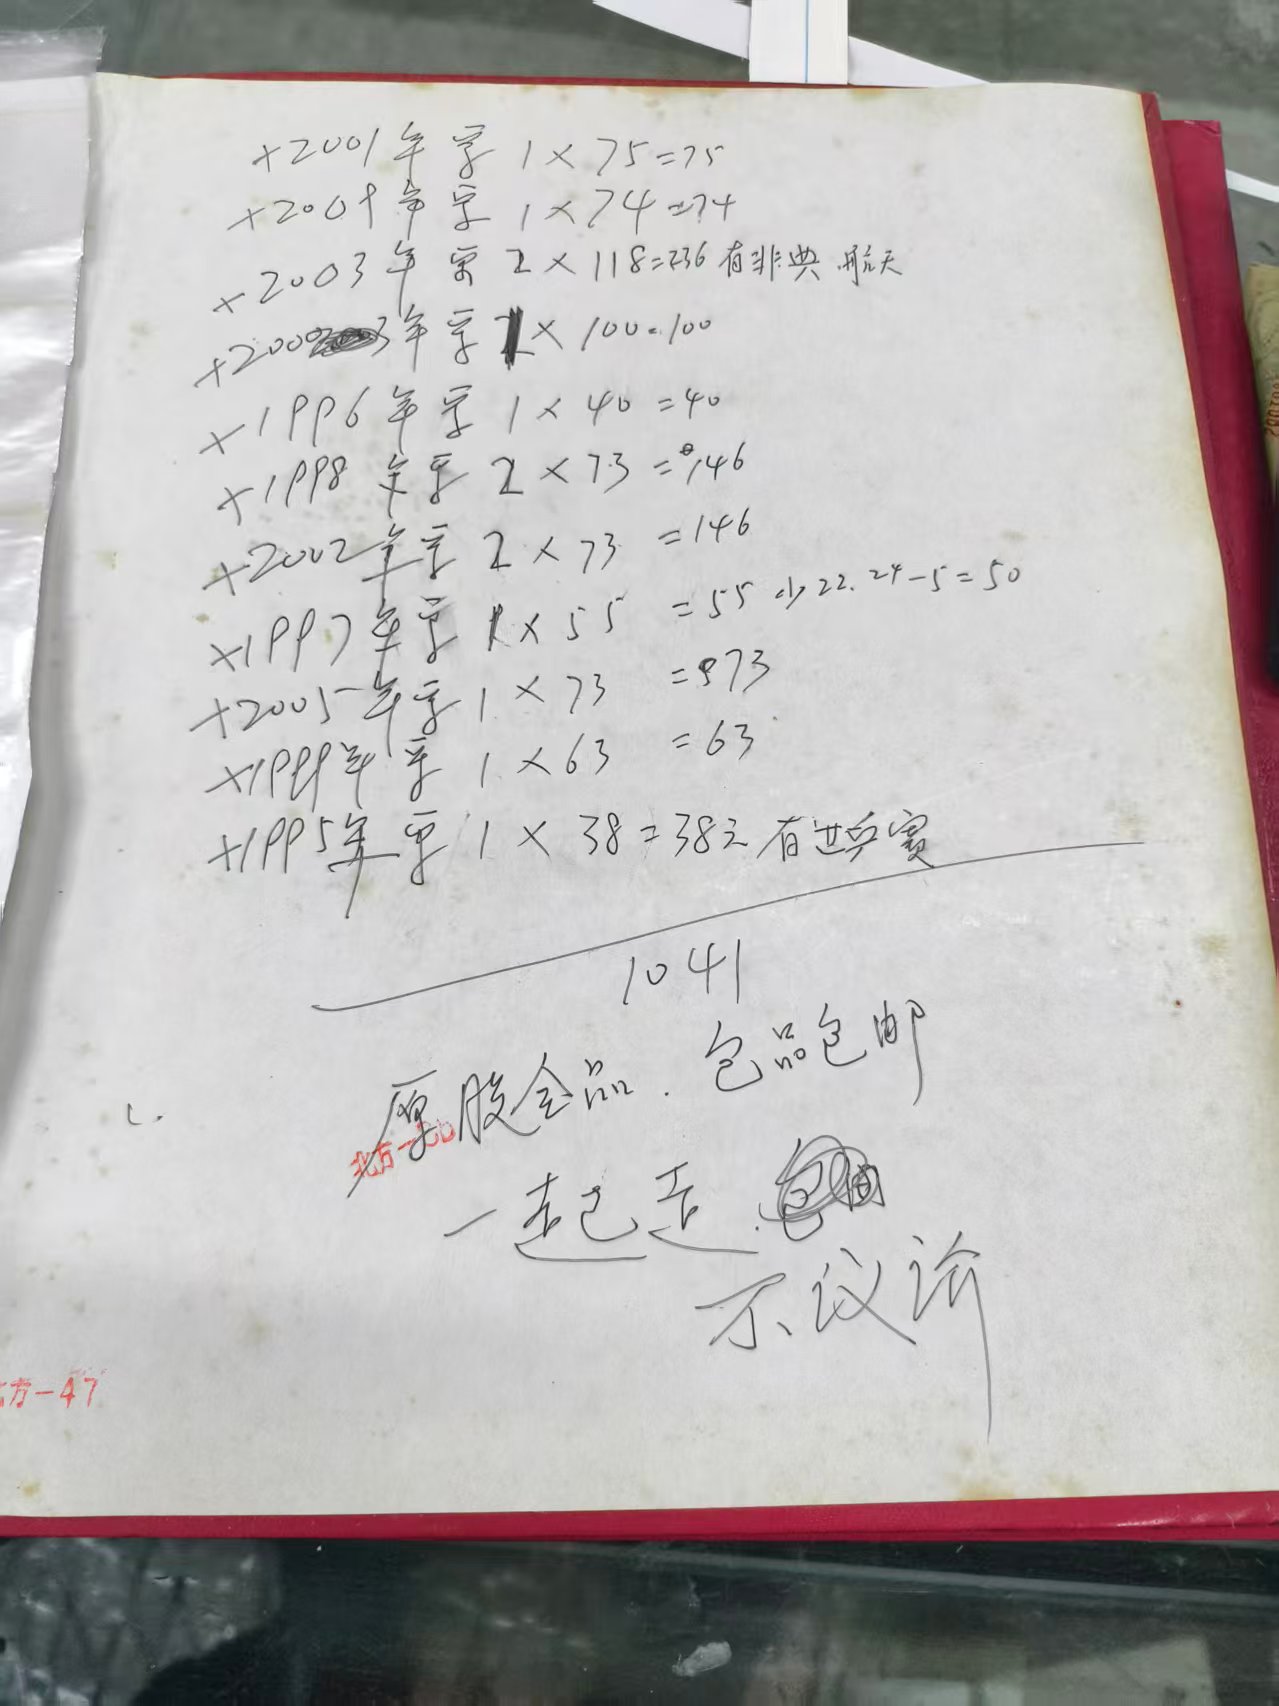 +2001年册 1×75=75
+2004年册 1×74=74
+2003年册 2×118=236 有非典 航天
+2000年册 1×100=100
+1996年册 1×40=40
+1998年册 2×73=146
+2002年册 2×73=146
+1997年册 1×55=55 少22.24-5=50
+2005年册 1×73=73
+1999年册 1×63=63
+1995年册 1×38=38元 有世乒赛
1041
原胶全品.包品包邮
北方一
一起走.
不议论
方-47